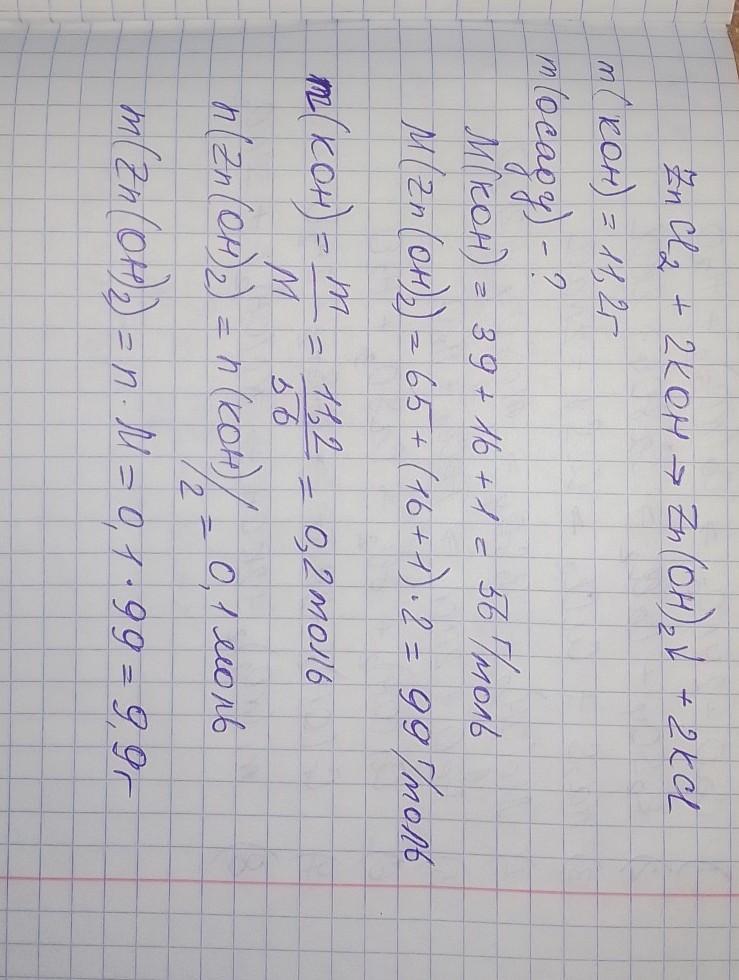 ZnCl₂ + 2KOH → Zn(OH)₂↓ + 2KCl
m(KOH) = 11,2г
m(осаду) - ?
M(KOH) = 39 + 16 + 1 = 56 г/моль
M(Zn(OH)₂) = 65 + (16 + 1)·2 = 99 г/моль
n(KOH) = m/M = 11,2/56 = 0,2 моль
n(Zn(OH)₂) = n(KOH)/2 = 0,1 моль
m(Zn(OH)₂) = n · M = 0,1 · 99 = 9,9г